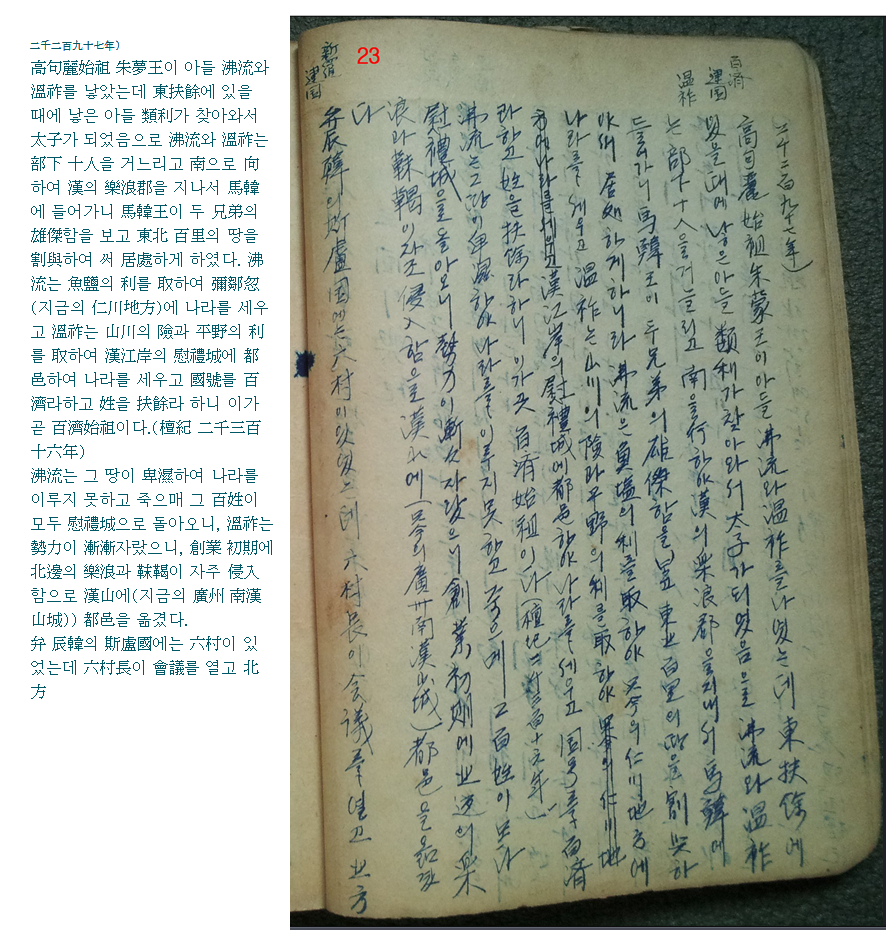 二千二百九十七年)
高句麗始祖 朱夢王이 아들 沸流와
溫祚를 낳았는데 東扶餘에 있을
때에 낳은 아들 類利가 찾아와서
太子가 되었음으로 沸流와 溫祚는
部下 十人을 거느리고 南으로 向
하여 漢의 樂浪郡을 지나서 馬韓
에 들어가니 馬韓王이 두 兄弟의
雄傑함을 보고 東北 百里의 땅을
割與하여 써 居處하게 하였다. 沸
流는 魚鹽의 利를 取하여 彌鄒忽
(지금의 仁川地方)에 나라를 세우
고 溫祚는 山川의 險과 平野의 利
를 取하여 漢江岸의 慰禮城에 都
邑하여 나라를 세우고 國號를 百
濟라하고 姓을 扶餘라 하니 이가
곧 百濟始祖이다.(檀紀 二千三百
十六年)
沸流는 그 땅이 卑濕하여 나라를
이루지 못하고 죽으매 그 百姓이
모두 慰禮城으로 돌아오니, 溫祚는
勢力이 漸漸자랐으니, 創業 初期에
北邊의 樂浪과 靺鞨이 자주 侵入
함으로 漢山에(지금의 廣州 南漢
山城)) 都邑을 옮겼다.
弁 辰韓의 斯盧國에는 六村이 있
었는데 六村長이 會議를 열고 北
方
23
百済
建国
溫祚
二千二百九十七年)
高句麗始祖朱蒙王이아들 沸流와溫祚를나엇는데東扶餘에
있을때에낳은아들 類利가찾아와서太子가되였음을 沸流와 温祚
는部下十人을거늘리고 南을行하야漢의樂浪郡을지내서馬韓에
들어가니馬韓王이두兄弟의雄傑함을보고 東北百里의땅을割與하
야써居処하게하니라沸流은魚塩의利를取하야只今의仁川地方에
나라를세우고 温祚는山川의險과平野의利를取하야 只今의仁川地
方에나라를세우고漢江岸의慰禮城에都邑하야나라를세우고国号를百済
라하고姓을扶餘라하니이가곳 百済始祖이다(檀紀二千三百十六年)
沸流는그땅이卑濕하야나라를이루지못하고죽으매그百姓이모다
慰禮城을로돌아오니勢力이漸々자랐으니創業初期에北邊의樂
浪과靺鞨이자조侵入함으로漢山에(只今의廣州南漢山城)都邑을옮겻
다
新羅
建国
弁辰韓의斯盧国에는六村이있엇는데六村長이会議를열고北方